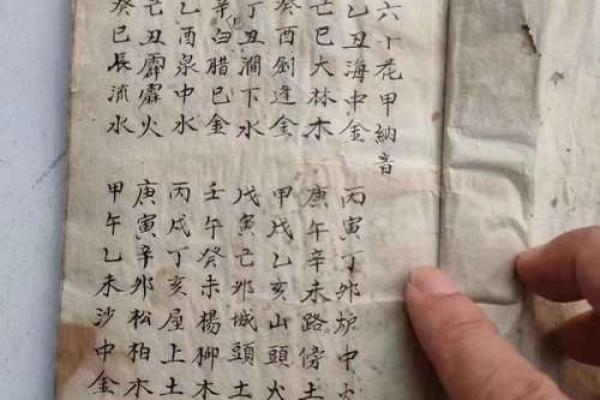 六十花甲納音
乙丑海中金
己巳大林木
癸酉劍逢金
丁丑澗下水
白腊巳金
乙酉泉中水
己丑霹靂火
癸巳長流水
丙寅丁卯炉中火
庚午辛未路傍土
甲戌乙亥山頭火
戊寅己卯城頭土
壬午癸未楊柳木
丙戌丁亥屋上土
庚寅辛卯松柏木
甲午乙未沙中金